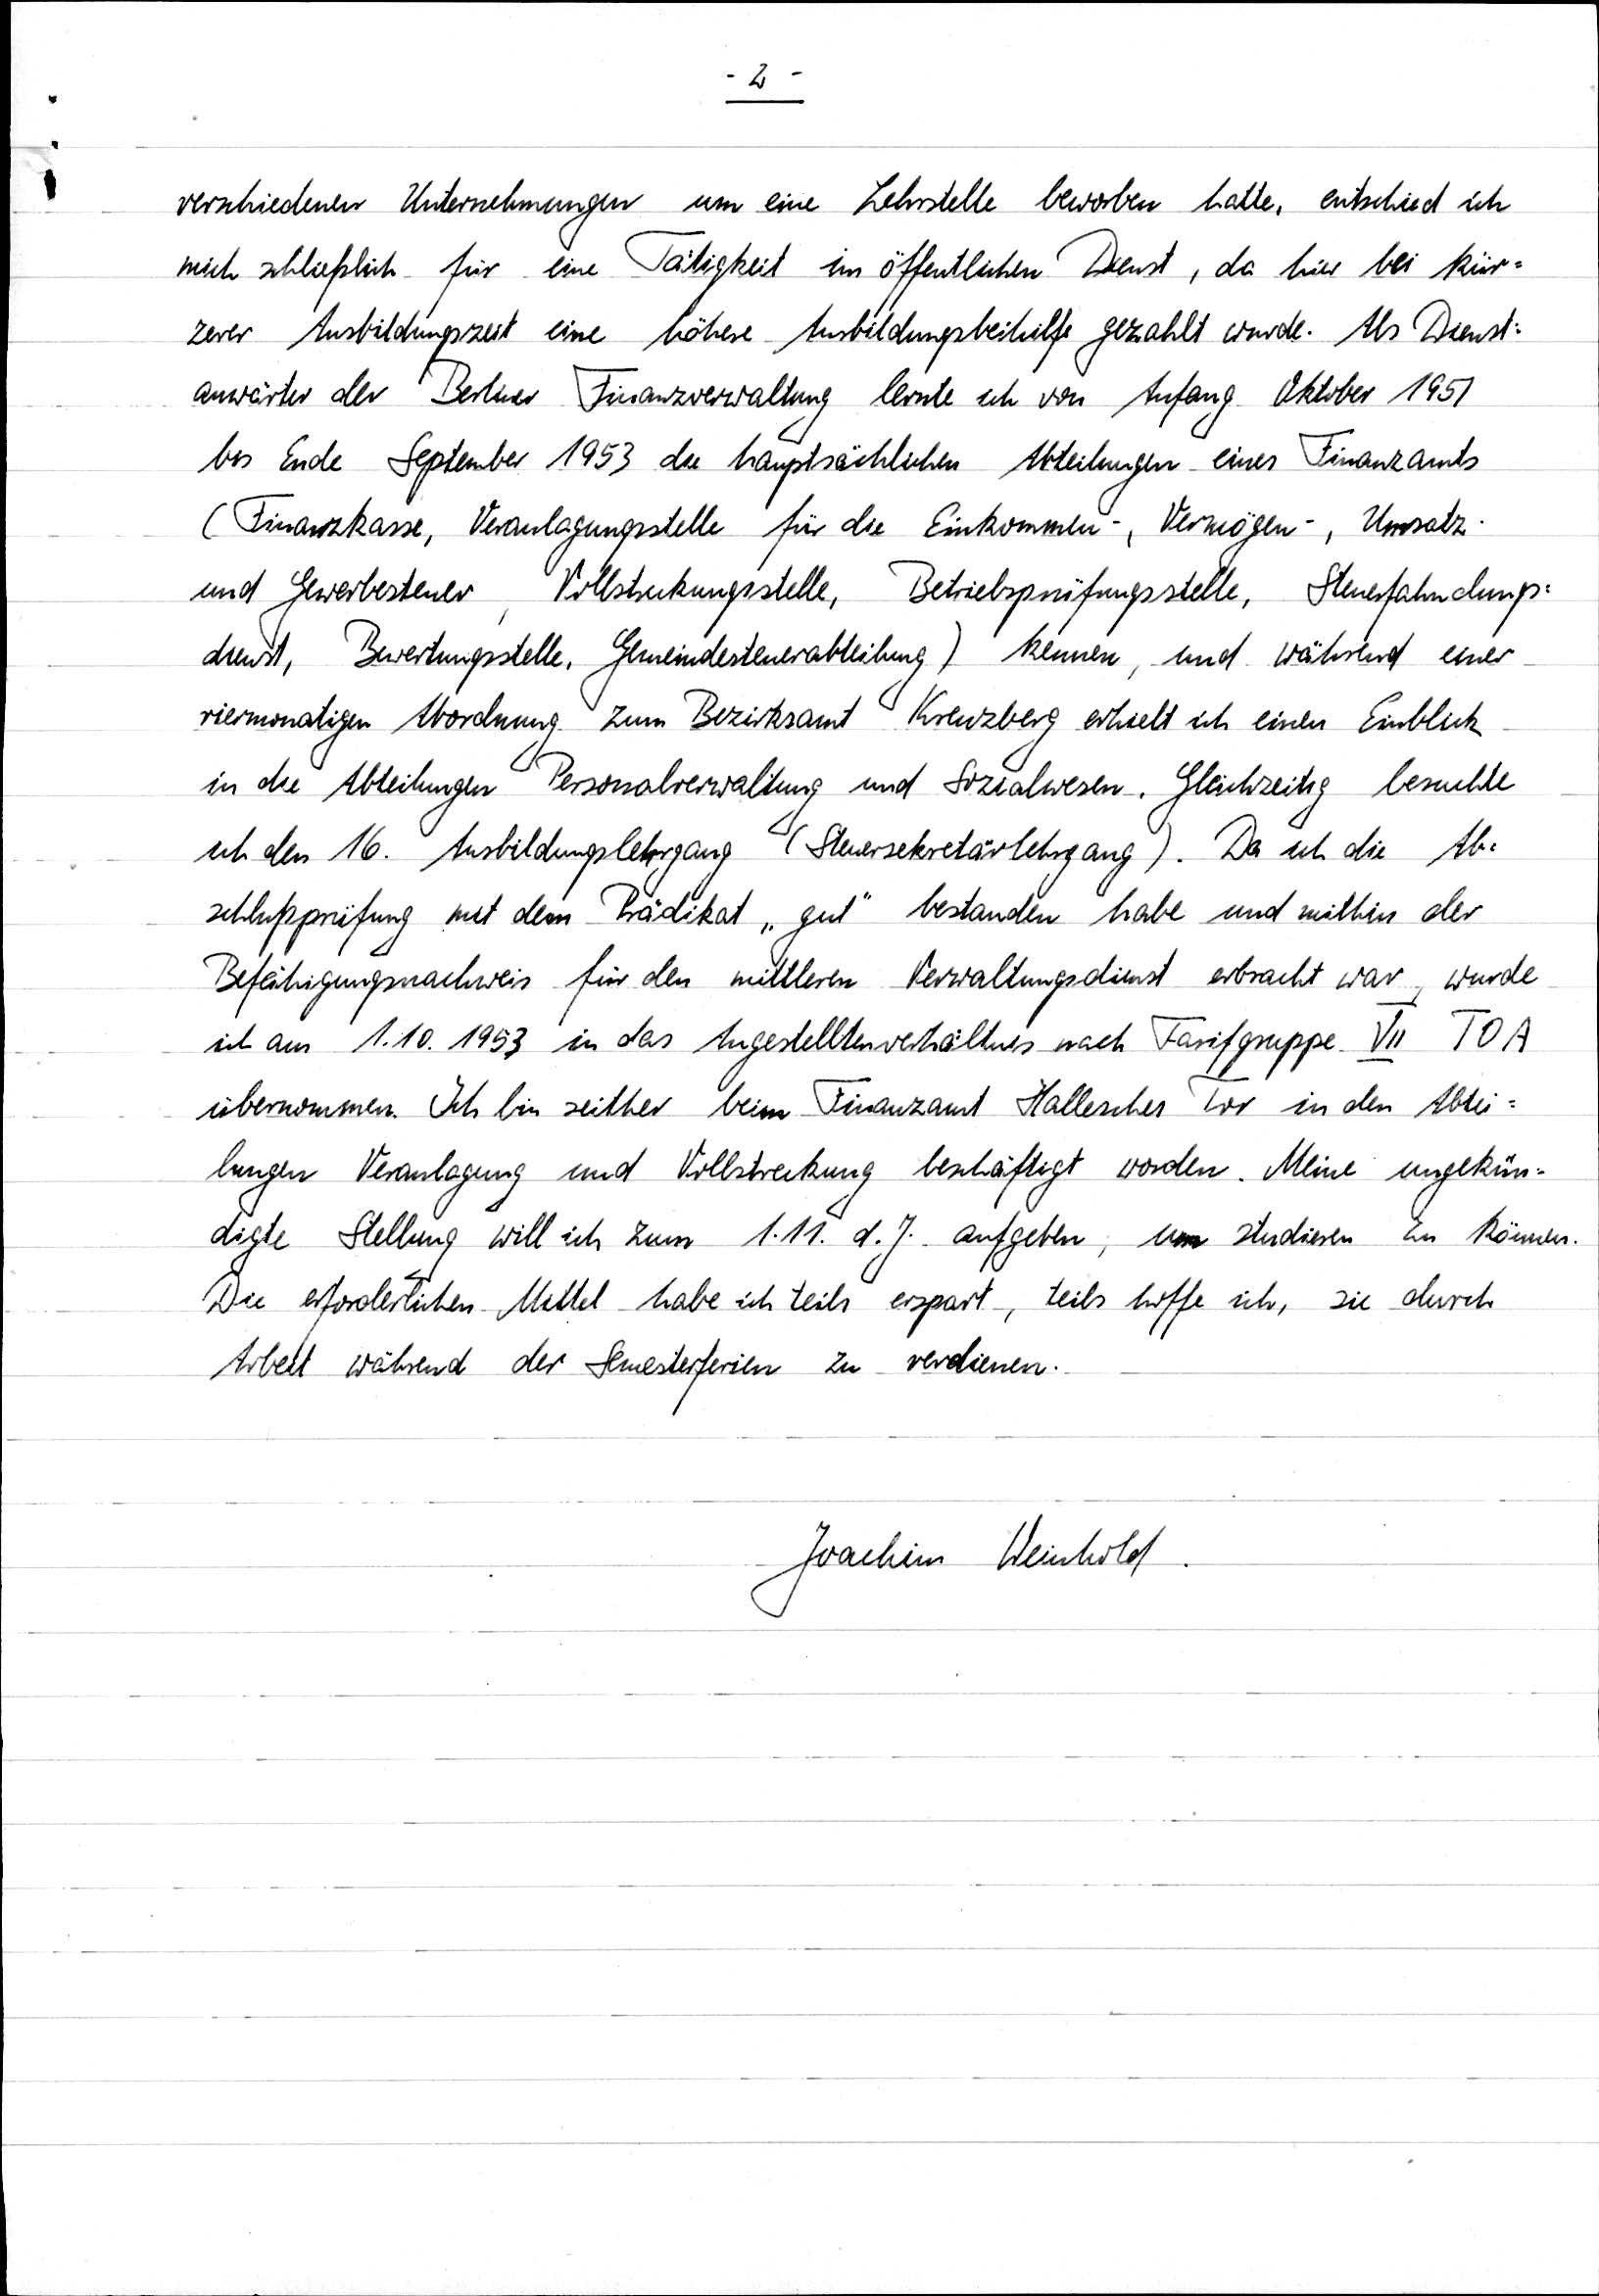 - 2 -
verschiedenen Unternehmungen um eine Lehrstelle beworben hatte, entschied ich
mich schließlich für eine Tätigkeit im öffentlichen Dienst, da hier bei kür=
zerer Ausbildungszeit eine höhere Ausbildungsbeihilfe gezahlt wurde. Als Dienst=
anwärter der Berliner Finanzverwaltung lernte ich von Anfang Oktober 1951
bis Ende September 1953 die hauptsächlichen Abteilungen eines Finanzamts
(Finanzkasse, Veranlagungsstelle für die Einkommen-, Vermögen-, Umsatz-
und Gewerbesteuer, Vollstreckungsstelle, Betriebsprüfungsstelle, Steuerfahndungs=
dienst, Bewertungsstelle, Gemeindesteuerabteilung) kennen, und während einer
viermonatigen Abordnung zum Bezirksamt Kreuzberg erhielt ich einen Einblick
in die Abteilungen Personalverwaltung und Sozialwesen. Gleichzeitig besuchte
ich den 16. Ausbildungslehrgang (Steuersekretärlehrgang). Da ich die Ab=
schlußprüfung mit dem Prädikat „gut" bestanden habe und mithin der
Befähigungsnachweis für den mittleren Verwaltungsdienst erbracht war, wurde
ich am 1.10.1953 in das Angestelltenverhältnis nach Tarifgruppe VII TOA
übernommen. Ich bin seither beim Finanzamt Hallesches Tor in den Abtei=
lungen Veranlagung und Vollstreckung beschäftigt worden. Meine ungekün=
digte Stellung will ich zum 1.11. d.J. aufgeben, um studieren zu können.
Die erforderlichen Mittel habe ich teils erspart, teils hoffe ich, sie durch
Arbeit während der Semesterferien zu verdienen.
Joachim Weinhold.